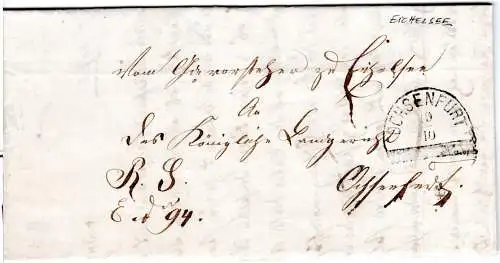 EICHELSEE
Vom Gdevorsteher zu Eichelsee
An
das Königliche Landgericht
R. S. Ochsenfurt
E. N. 94.
OCHSENFURT
9
10